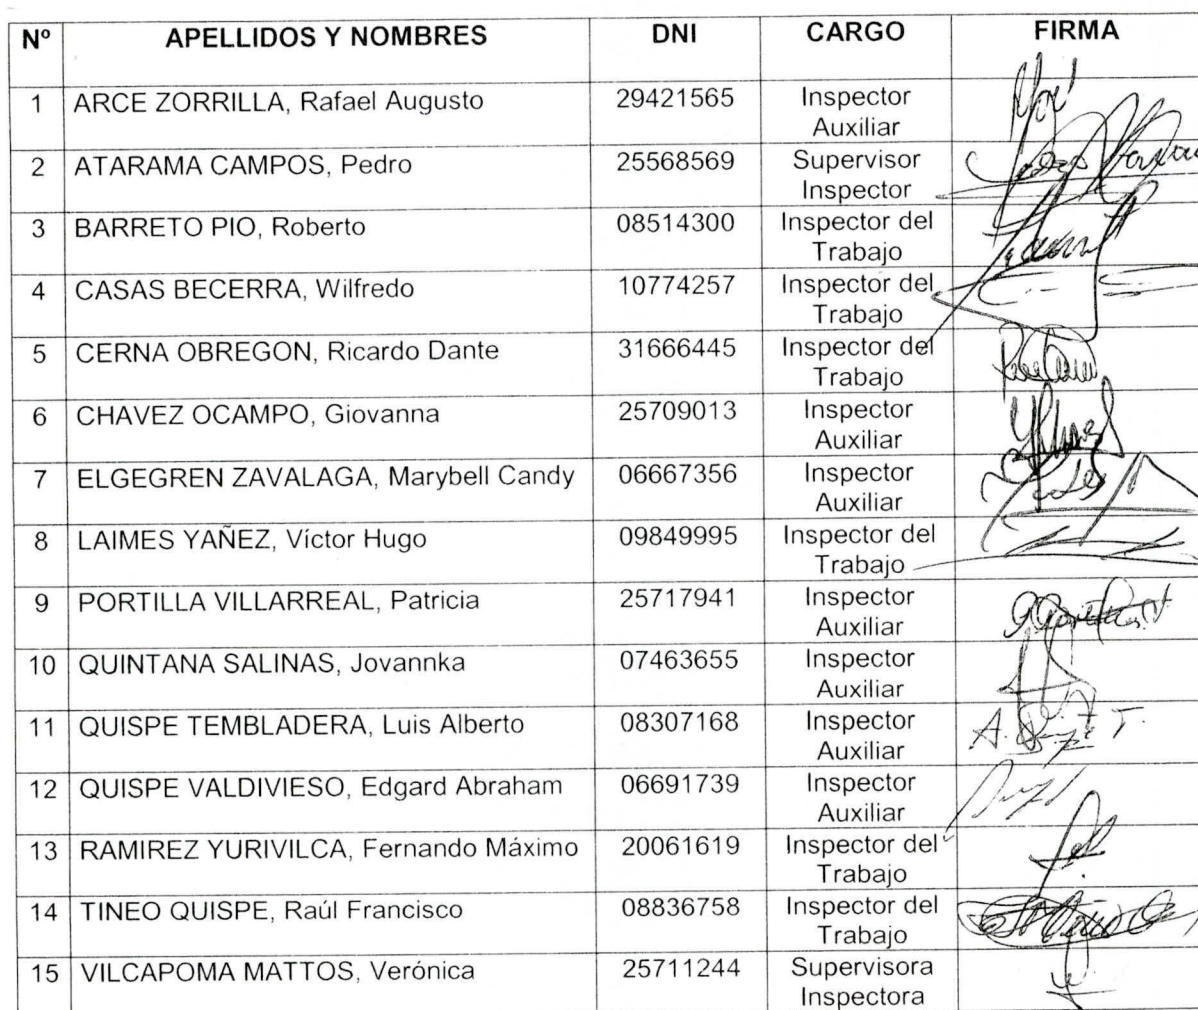 Nº APELLIDOS Y NOMBRES DNI CARGO FIRMA
1 ARCE ZORRILLA, Rafael Augusto 29421565 Inspector
Auxiliar
2 ATARAMA CAMPOS, Pedro 25568569 Supervisor
Inspector
3 BARRETO PIO, Roberto 08514300 Inspector del
Trabajo
4 CASAS BECERRA, Wilfredo 10774257 Inspector del
Trabajo
5 CERNA OBREGON, Ricardo Dante 31666445 Inspector del
Trabajo
6 CHAVEZ OCAMPO, Giovanna 25709013 Inspector
Auxiliar
7 ELGEGREN ZAVALAGA, Marybell Candy 06667356 Inspector
Auxiliar
8 LAIMES YAÑEZ, Víctor Hugo 09849995 Inspector del
Trabajo
9 PORTILLA VILLARREAL, Patricia 25717941 Inspector
Auxiliar
10 QUINTANA SALINAS, Jovannka 07463655 Inspector
Auxiliar
11 QUISPE TEMBLADERA, Luis Alberto 08307168 Inspector
Auxiliar
12 QUISPE VALDIVIESO, Edgard Abraham 06691739 Inspector
Auxiliar
13 RAMIREZ YURIVILCA, Fernando Máximo 20061619 Inspector del
Trabajo
14 TINEO QUISPE, Raúl Francisco 08836758 Inspector del
Trabajo
15 VILCAPOMA MATTOS, Verónica 25711244 Supervisora
Inspectora